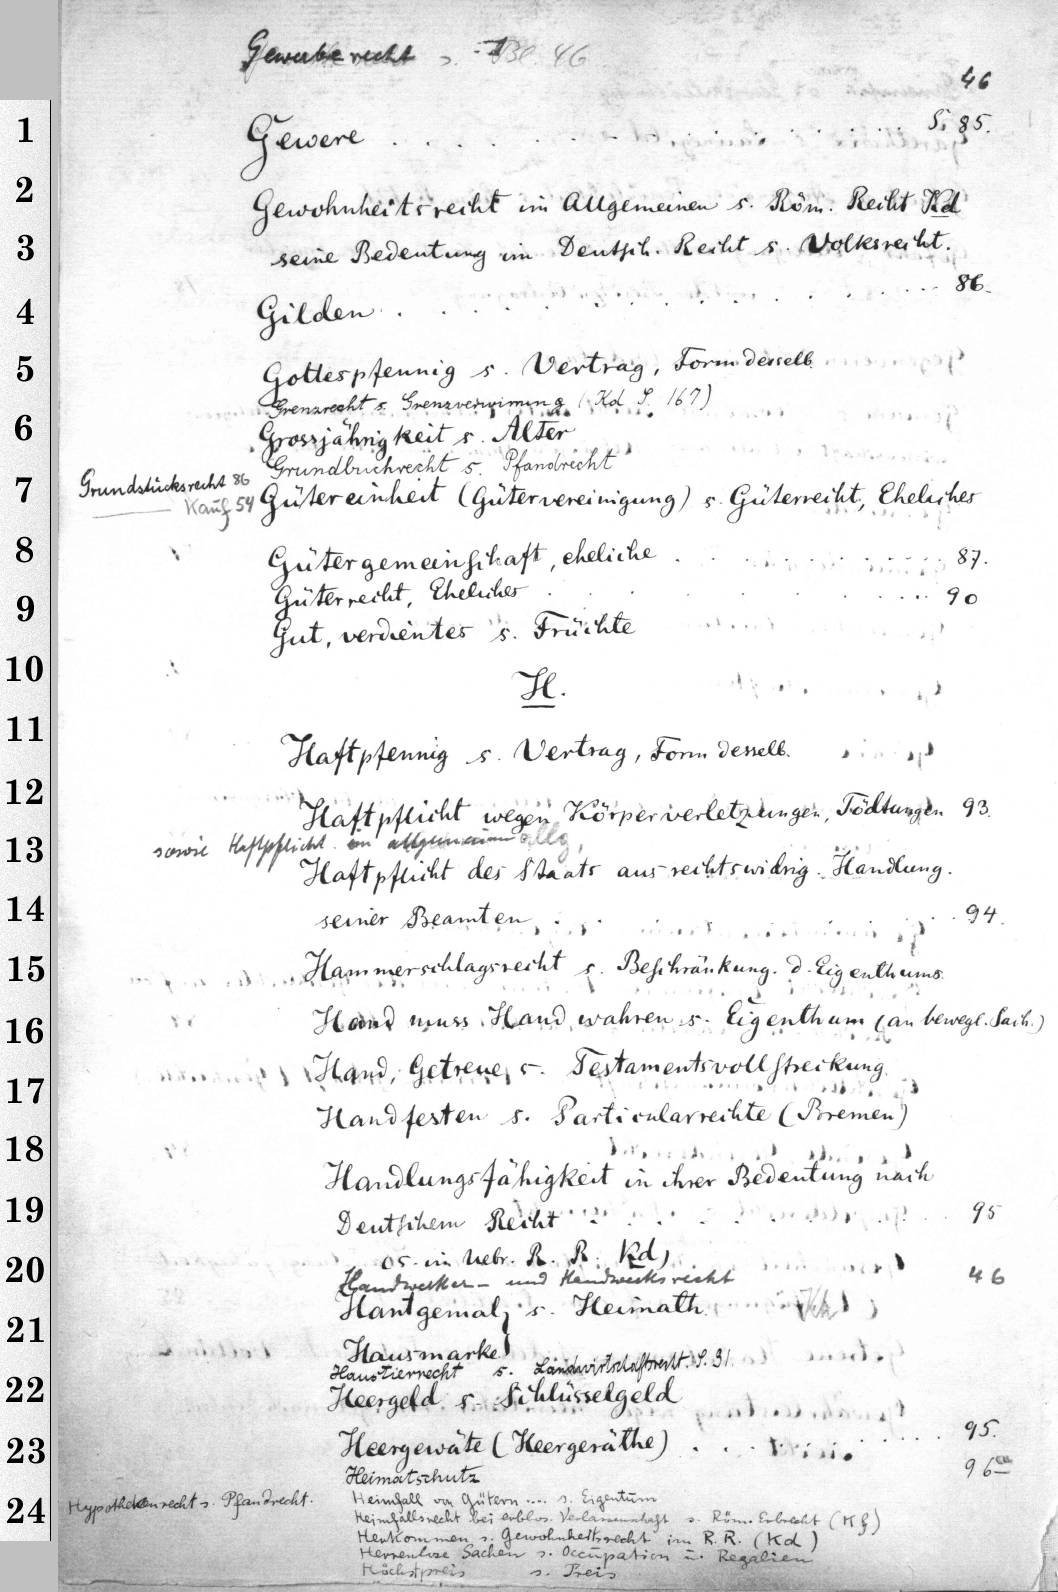 Gewerberecht s. Bl. 46
46
1 Gewere . . . . . . . . . . S. 85.
2 Gewohnheitsrecht im Allgemeinen s. Röm. Recht Kd
3 seine Bedeutung im Deutsch. Recht s. Volksrecht.
4 Gilden . . . . . . . . . . 86.
5 Gottespfennig s. Vertrag, Form desselb.
Grenzrecht s. Grenzverwirrung (Kd S. 167)
6 Grossjährigkeit s. Alter
Grundbuchrecht s. Pfandrecht
Grundstücksrecht 86
Kauf 54
7 Gütereinheit (Gütervereinigung) s. Güterrecht, Eheliches
8 Gütergemeinschaft, eheliche . . . . . . . 87.
9 Güterrecht, Eheliches . . . . . . . 90
Gut, verdientes s. Früchte
10 H.
11 Haftpfennig s. Vertrag, Form desselb.
12 Haftpflicht wegen Körperverletzungen, Tödtungen 93.
sowie Haftpflicht im allgemeinen allg.
13 Haftpflicht des Staats aus rechtswidrig. Handlung.
14 seiner Beamten . . . . . . . 94.
15 Hammerschlagsrecht s. Beschränkung. d. Eigenthums.
16 Hand muss Hand wahren s. Eigenthum (an bewegl. Sach.)
17 Hand, Getreue, s. Testamentsvollstreckung.
Handfesten s. Particularrechte (Bremen)
18 Handlungsfähigkeit in ihrer Bedeutung nach
19 Deutschem Recht . . . . . . . 95
cs. im Uebr. R. R. Kd)
20 Handwerker- und Handwerksrecht 46
Hantgemal, s. Heimath.
21 Hausmarke
Haustierrecht s. Landwirtschaftsrecht. S. 31
22 Heergeld s. Schlüsselgeld
23 Heergewäte (Heergeräthe) . . . . . . 95.
Heimatschutz 96
24 Hypothekenrecht s. Pfandrecht.
Heimfall von Gütern .... s. Eigentum
Heimfallsrecht bei erblos. Verlassenschaft s. Röm. Erbrecht (Kf)
Herkommen s. Gewohnheitsrecht im R. R. (Kd)
Herrenlose Sachen s. Occupation u. Regalien
Höchstpreis s. Preis